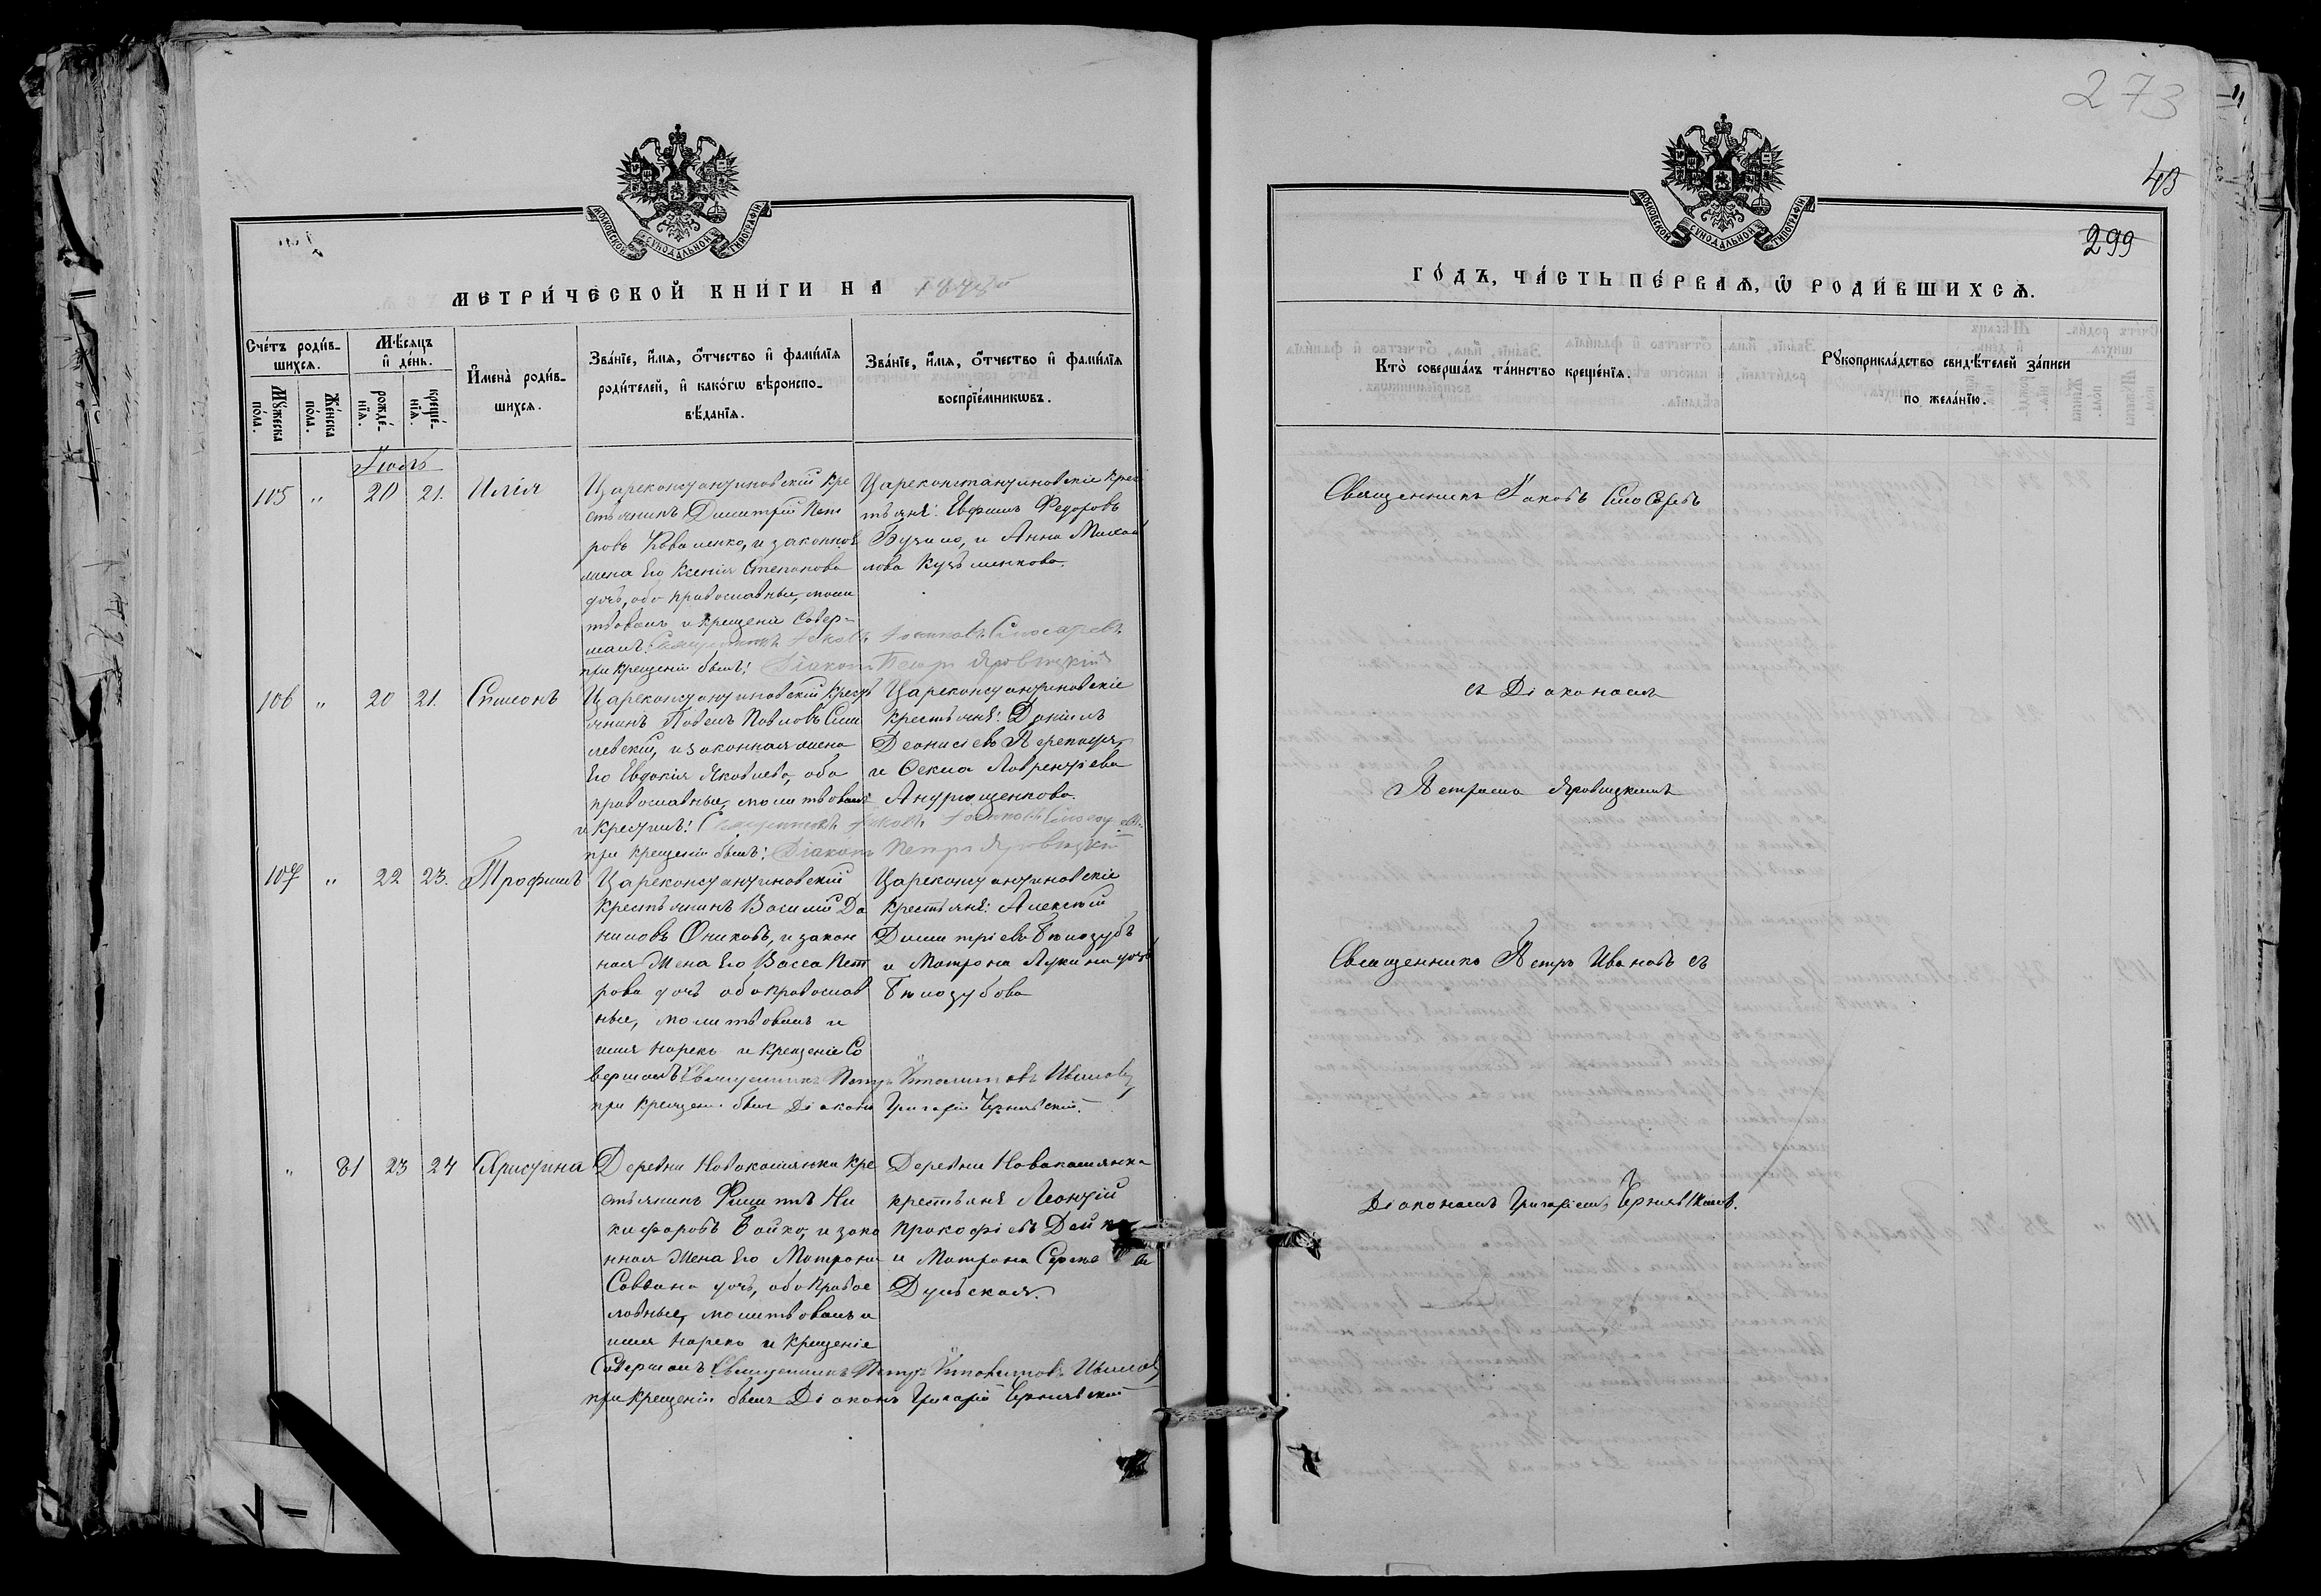 273
43
299
МОСКОВСКОЙ СѴНОДАЛЬНОЙ ТИПОГРАФІИ
МОСКОВСКОЙ СѴНОДАЛЬНОЙ ТИПОГРАФІИ
МЕТРИ́ЧЕСКОЙ КНИ́ГИ НА
ГО́ДЪ, ЧА́СТЬ ПЕ́РВАѦ, Ѡ҆ РОДИ́ВШИХСѦ.
Сче́тъ роди́в-
шихсѧ.
Мꙋ́жеска по́ла.
Же́нска по́ла.
Мѣ́сѧцъ
и҆ де́нь.
рожде́-
нїѧ.
креще́-
нїѧ.
И҆мена̀ роди́в-
шихсѧ.
Зва́нїе, и҆́мѧ, ѻ҆́тчество и҆ фами́лїѧ
роди́телей, и҆ како́гѡ вѣроиспо-
вѣ́данїѧ.
Зва́нїе, и҆́мѧ, ѻ҆́тчество и҆ фами́лїѧ
воспрїе́мникѡвъ.
Кто̀ соверша́лъ та́инство креще́нїѧ.
Рꙋкоприкла́дство свидѣ́телей за́писи
по жела́нїю.
Іюль
115 " 20 21. Илія
Цареконстантиновскій кре
стьянинъ Димитрій Пет
ровъ Коваленко, и законная
жена его Ксенія Степанова
дочь, оба православные, моли
твовалъ и крещеніе совер-
шалъ: Священникъ Іаковъ Іоанновъ Слюсаревъ
при крещеніи былъ: Діаконъ Петръ Яровицкій
Цареконстантиновскіе крес
тьяне: Ефимъ Федоровъ
и Анна Михай
лова Кузьменкова.
Священникъ Іаковъ Слюсаревъ
106 " 20 21. Симеонъ
Цареконстантиновскій крест
янинъ Павелъ Павловъ
и законная жена
его Евдокія Яковлева, оба
православные, молитвовалъ
и крестилъ: Священникъ Іаковъ Іоанновъ
при крещеніи былъ: Діаконъ Петръ Яровицкій
Цареконстантиновскіе
крестьяне: Даніилъ
Деонисіевъ
и Ѳекла Лаврентіева
Андрющенкова.
съ Діакономъ
Петромъ Яровицкимъ
107 " 22 23. Трофимъ
Цареконстантиновскій
крестьянинъ Василій Да
ниловъ Ониковъ, и закон
ная жена его Васса Пет
рова дочь оба православ
ные, молитвовалъ и
имя нарекъ и крещеніе со
вершалъ: Священникъ Петръ Ивановъ
при крещеніи былъ Діаконъ Григорій Чернявскій.
Цареконстантиновскіе
крестьяне: Алексѣй
Димитріевъ Бѣлозубъ
и Матрона Лукина дочь
Бѣлозубова
Священникъ Петръ Ивановъ съ
" 81 23 24 Христина
Деревни Новокашлянки кре
стьянинъ Филиппъ Ни
кифоровъ Бойко, и зако
нная жена его Матрона
Саввина дочь, оба правос
лавные, молитвовалъ и
имя нарекъ и крещеніе
совершалъ Священникъ Петръ Ивановъ
при крещеніи былъ Діаконъ Григорій Чернявскій
Деревни Новокашлянки
крестьяне Леонтій
Прокофіевъ
и Матрона
Діакономъ Григоріемъ Чернявскимъ.